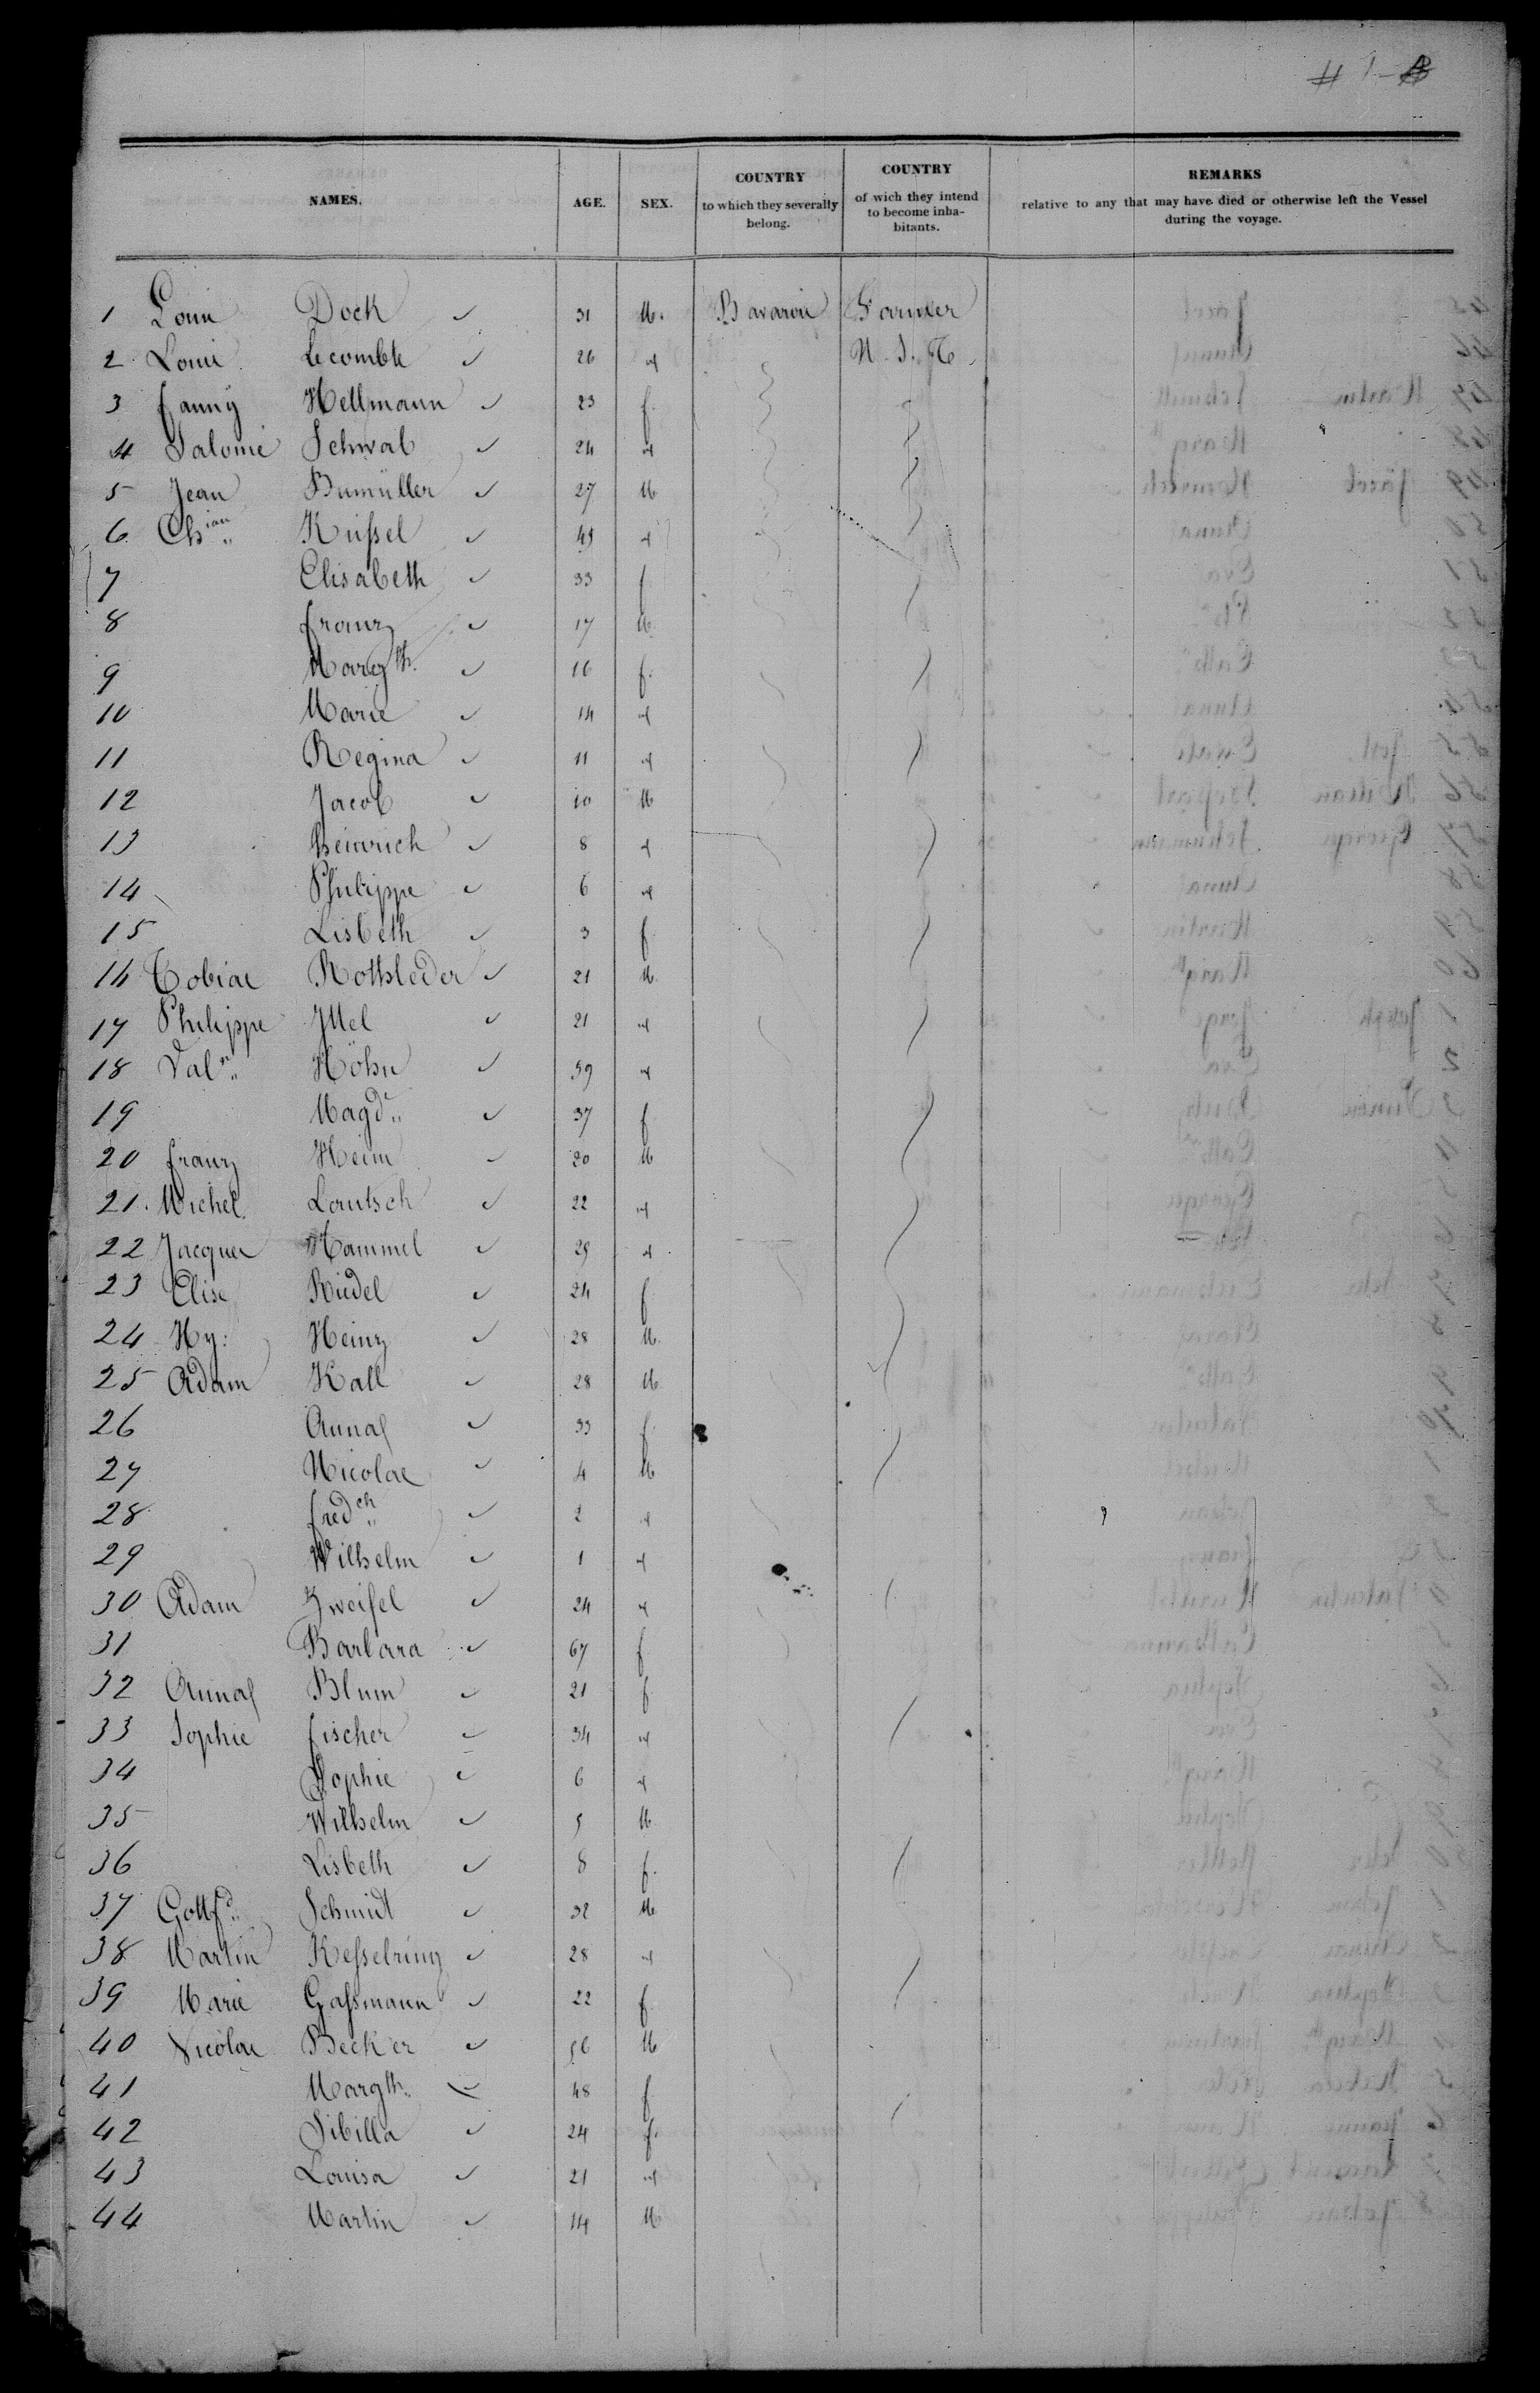 # 1-
NAMES. AGE. SEX. COUNTRY to which they severally belong. COUNTRY of wich they intend to become inhabitants. REMARKS relative to any that may have died or otherwise left the Vessel during the voyage.
1 Louis Dock 31 M. Bavaria Farmer
2 Louis Lecombte 26 " U. S. A.
3 fanny Hellmann 23 f.
4 Salomé Schwab 24 "
5 Jean Bumüller 27 M
6 Ch^ian Küssel 49 "
7 Elisabeth 33 f
8 franz 17 M.
9 Marg^th. 16 f.
10 Marie 14 "
11 Regina 11 "
12 Jacob 10 M
13 heinrich 8 "
14 Philippe 6 "
15 Lisbeth 3 f
16 Tobias Rothsleder 21 M.
17 Philippe Ittel 21 "
18 Val^n Höhn 59 "
19 Magd^a 37 f
20 franz Heim 20 M
21. Michel Lautsch 22 "
22 Jacques Hammel 29 "
23 Elise Riedel 24 f
24 Hy: Heinz 28 M.
25 Adam Kall 28 M
26 Anna 33 f
27 Nicolas 4 M
28 fred^ch 2 "
29 Wilhelm 1 "
30 Adam Zweifel 24 "
31 Barbara 67 f
32 Anna Blum 21 f
33 Sophie fischer 34 "
34 Sophie 6 "
35 Wilhelm 5 M.
36 Lisbeth 8 f.
37 Gottf^d Schmidt 32 M
38 Martin Kesselring 28 "
39 Marie Gassmann 22 f
40 Nicolas Becker 56 M
41 Margth. 48 f
42 Sibilla 24 f.
43 Louisa 21 "
44 Martin 14 M